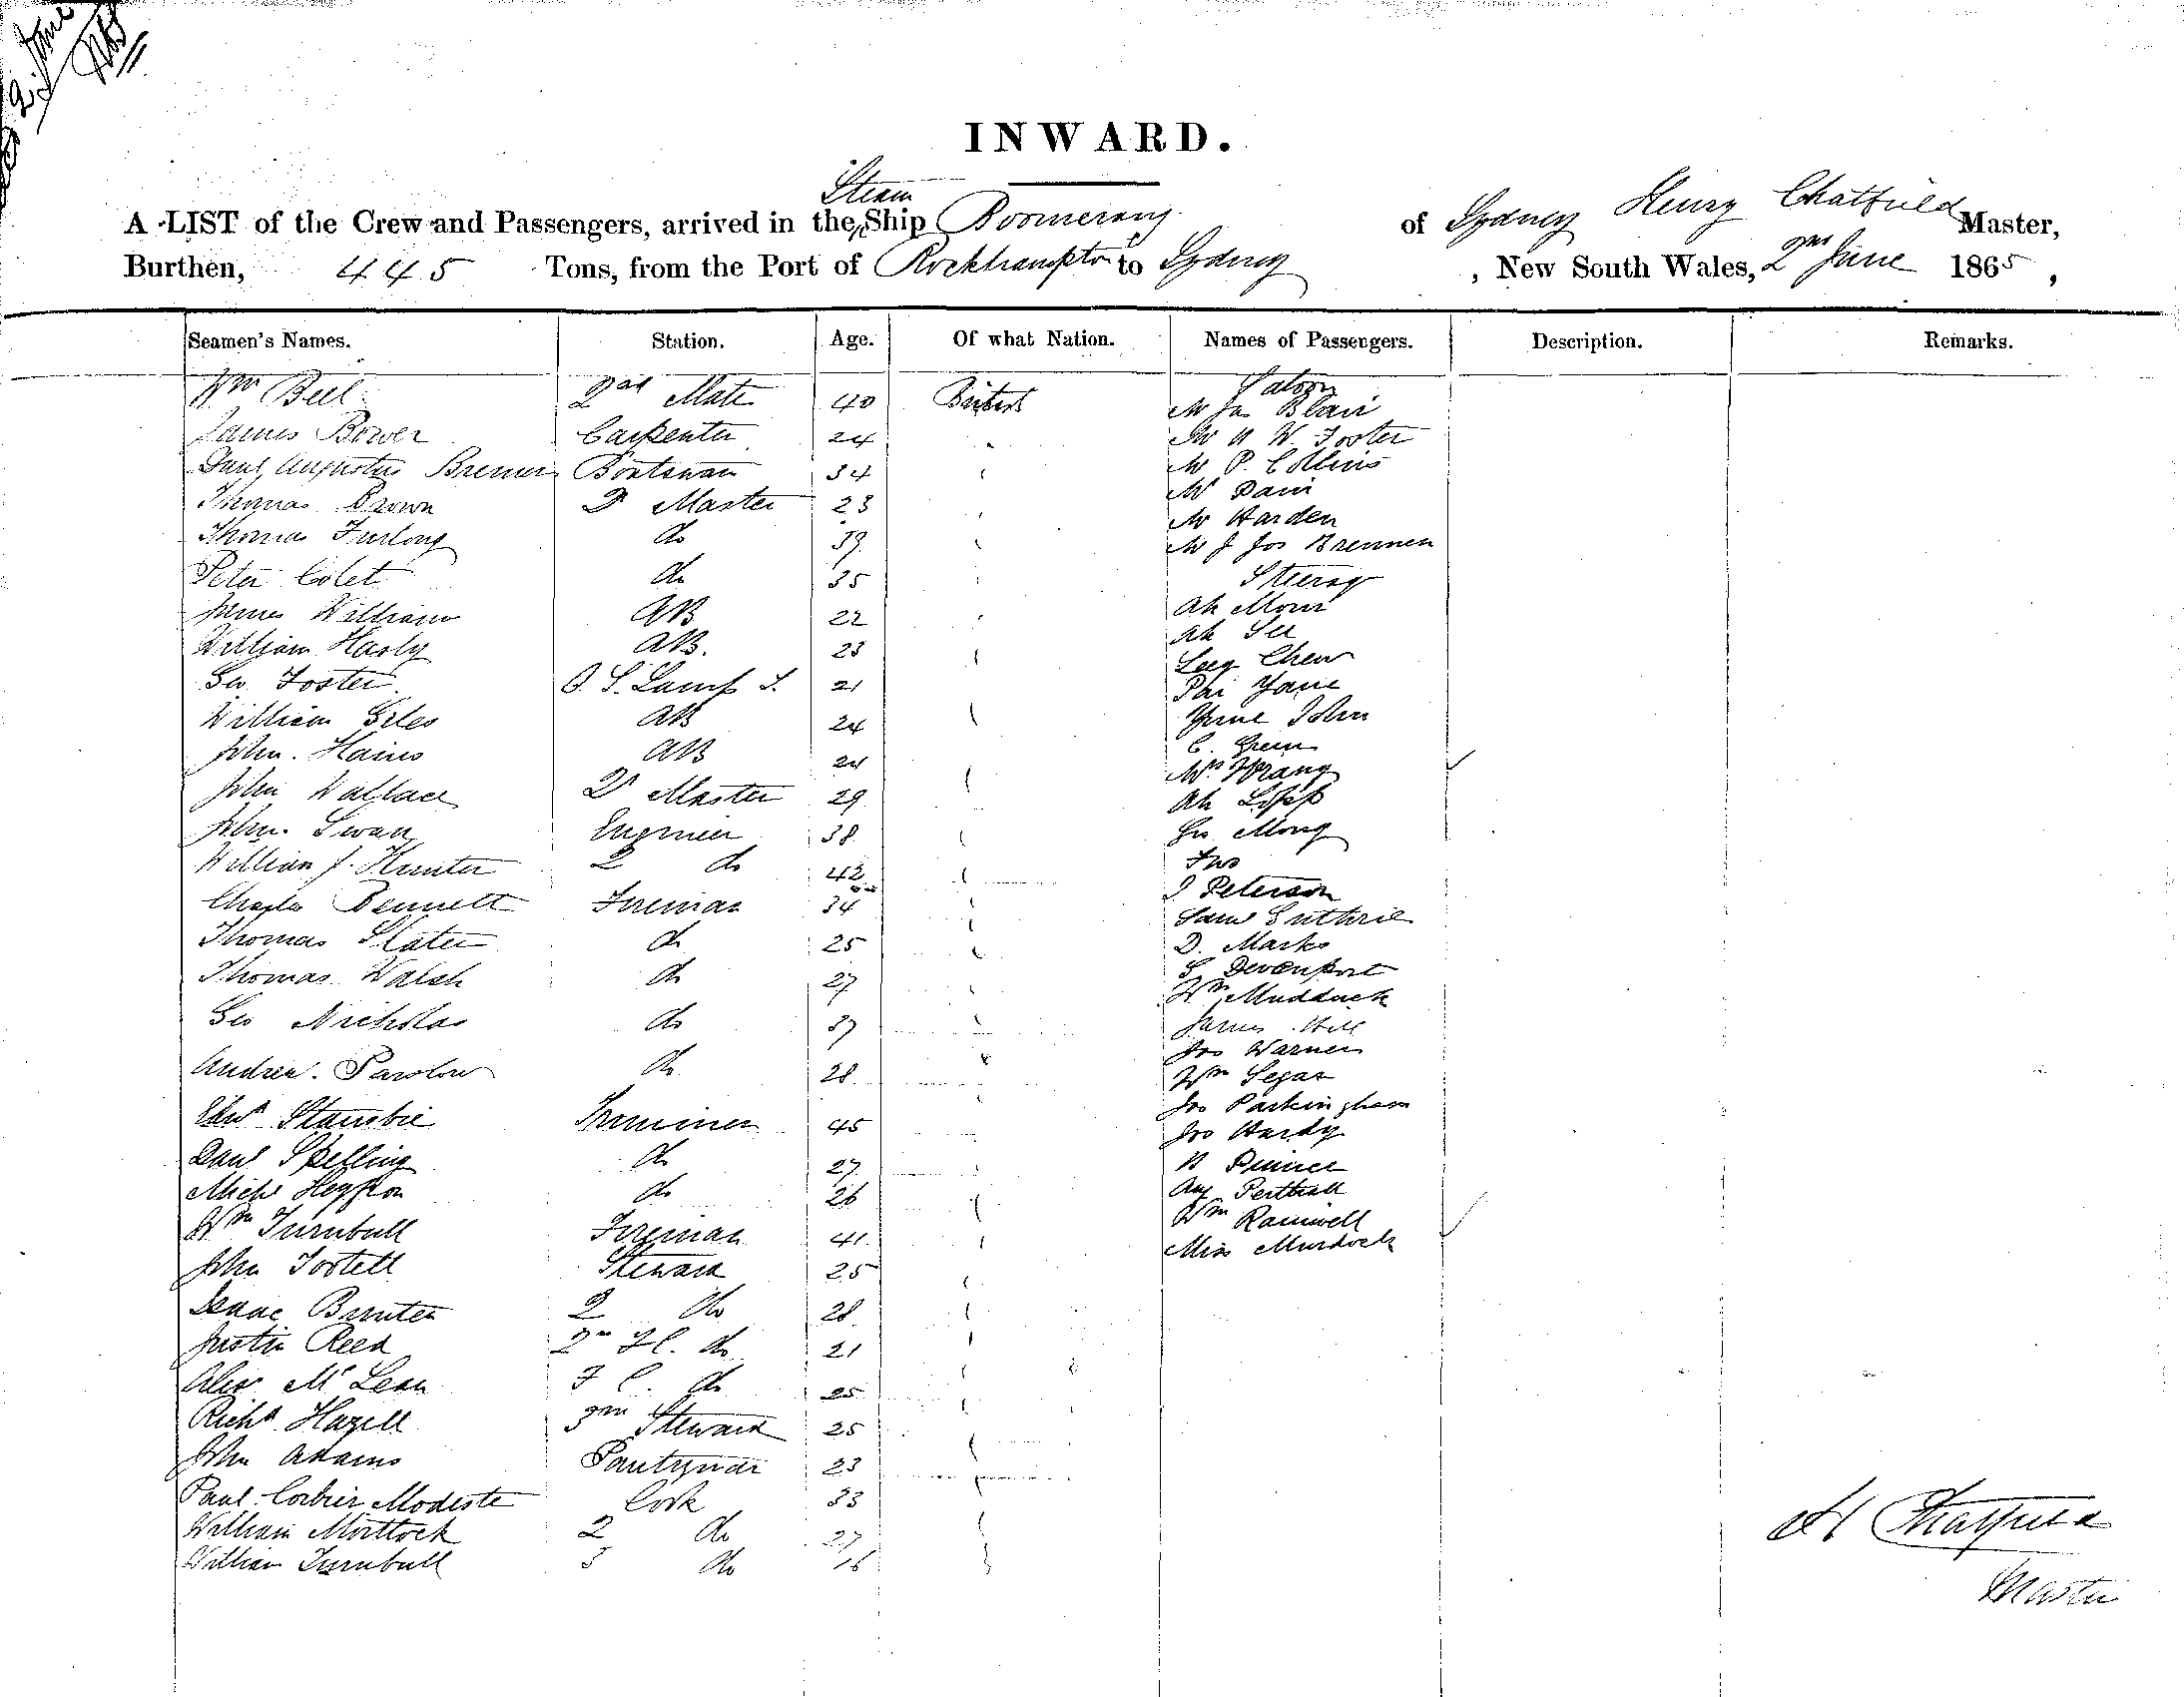 2 June
INWARD.
A LIST of the Crew and Passengers, arrived in the Steam Ship Boomerang of Sydney Henry Chatfield Master,
Burthen, 445 Tons, from the Port of Rockhampton to Sydney , New South Wales, 2nd June 1865 ,
Seamen's Names. Station. Age. Of what Nation. Names of Passengers. Description. Remarks.
Wm Bell 2nd Mate 40 British Saloon
Mr Jas Blair
James Bower Carpenter 24 Mr W. Foster
Paul Augustus Bremer Boatswain 34 Mr P. Collins
Thomas Brown Qr Master 23 Mr Dain
Mr Harden
Thomas Furlong do 39 Mr J Jos Brennen
Peter Colet do 35 Steerage
James William AB 22 Ah Moni
William Hasly AB. 23 Ah See
Leey Chew
Geo. Foster O. S. Lamp T. 21 Phi Yane
William Giles AB 24 Yune John
John. Hains AB 24 C. Green
Mrs Wrang
John Wallace Qr Master 29 Ah
John. Swan Engineer 38 Geo Mong
William J. Hunter 2 do 42 Two
J Peterson
Charles Bennett Fireman 34 Saml Guthrie
Thomas Slater do 25 D. Marks
S Devenport
Thomas Walsh do 27 Wm Mudduck
Geo Nicholas do 37 James Hill
Jno Warner
Andrew. Parslow do 28 Wm Segar
Jno Parkingham
Edwd Stansbie Trimmer 45 Jno Hardy
Danl Spelling do 27 Prince
Michl Heyfron do 26 Aug Perthall
Wm Turnbull Fireman 41 Wm Ramwell
Miss Murdock
John Tostell Steward 25
Isaac Bunter 2 do 28
Justin Reed 2nd F C. do 21
Alex McLean F C. do 25
Richd Hazell 3rd Steward 25
John Adams Pantryman 23
Paul Corbier Modeste Cook 33
William Mortlock 2 do 27
William Turnbull 3 do 16
H Chatfield
Master